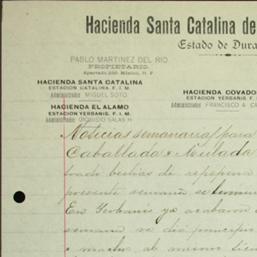 Hacienda Santa Catalina de
Estado de Dura
PABLO MARTINEZ DEL RIO
PROPIETARIO.
Apartado 250. México, D. F.
HACIENDA SANTA CATALINA
ESTACION CATALINA. F. I. M.
Administrador MIGUEL SOTO
HACIENDA COVADO
ESTACION YERBANIS. F. I.
Administrador FRANCISCO A
HACIENDA EL ALAMO
ESTACION YERBANIS. F. I. M.
Administrador SALAS H
Noticias semanarias para
Caballada & Mulada
bestias de
presente semana se
En Yerbanis ya acabaron
semana se dio principio